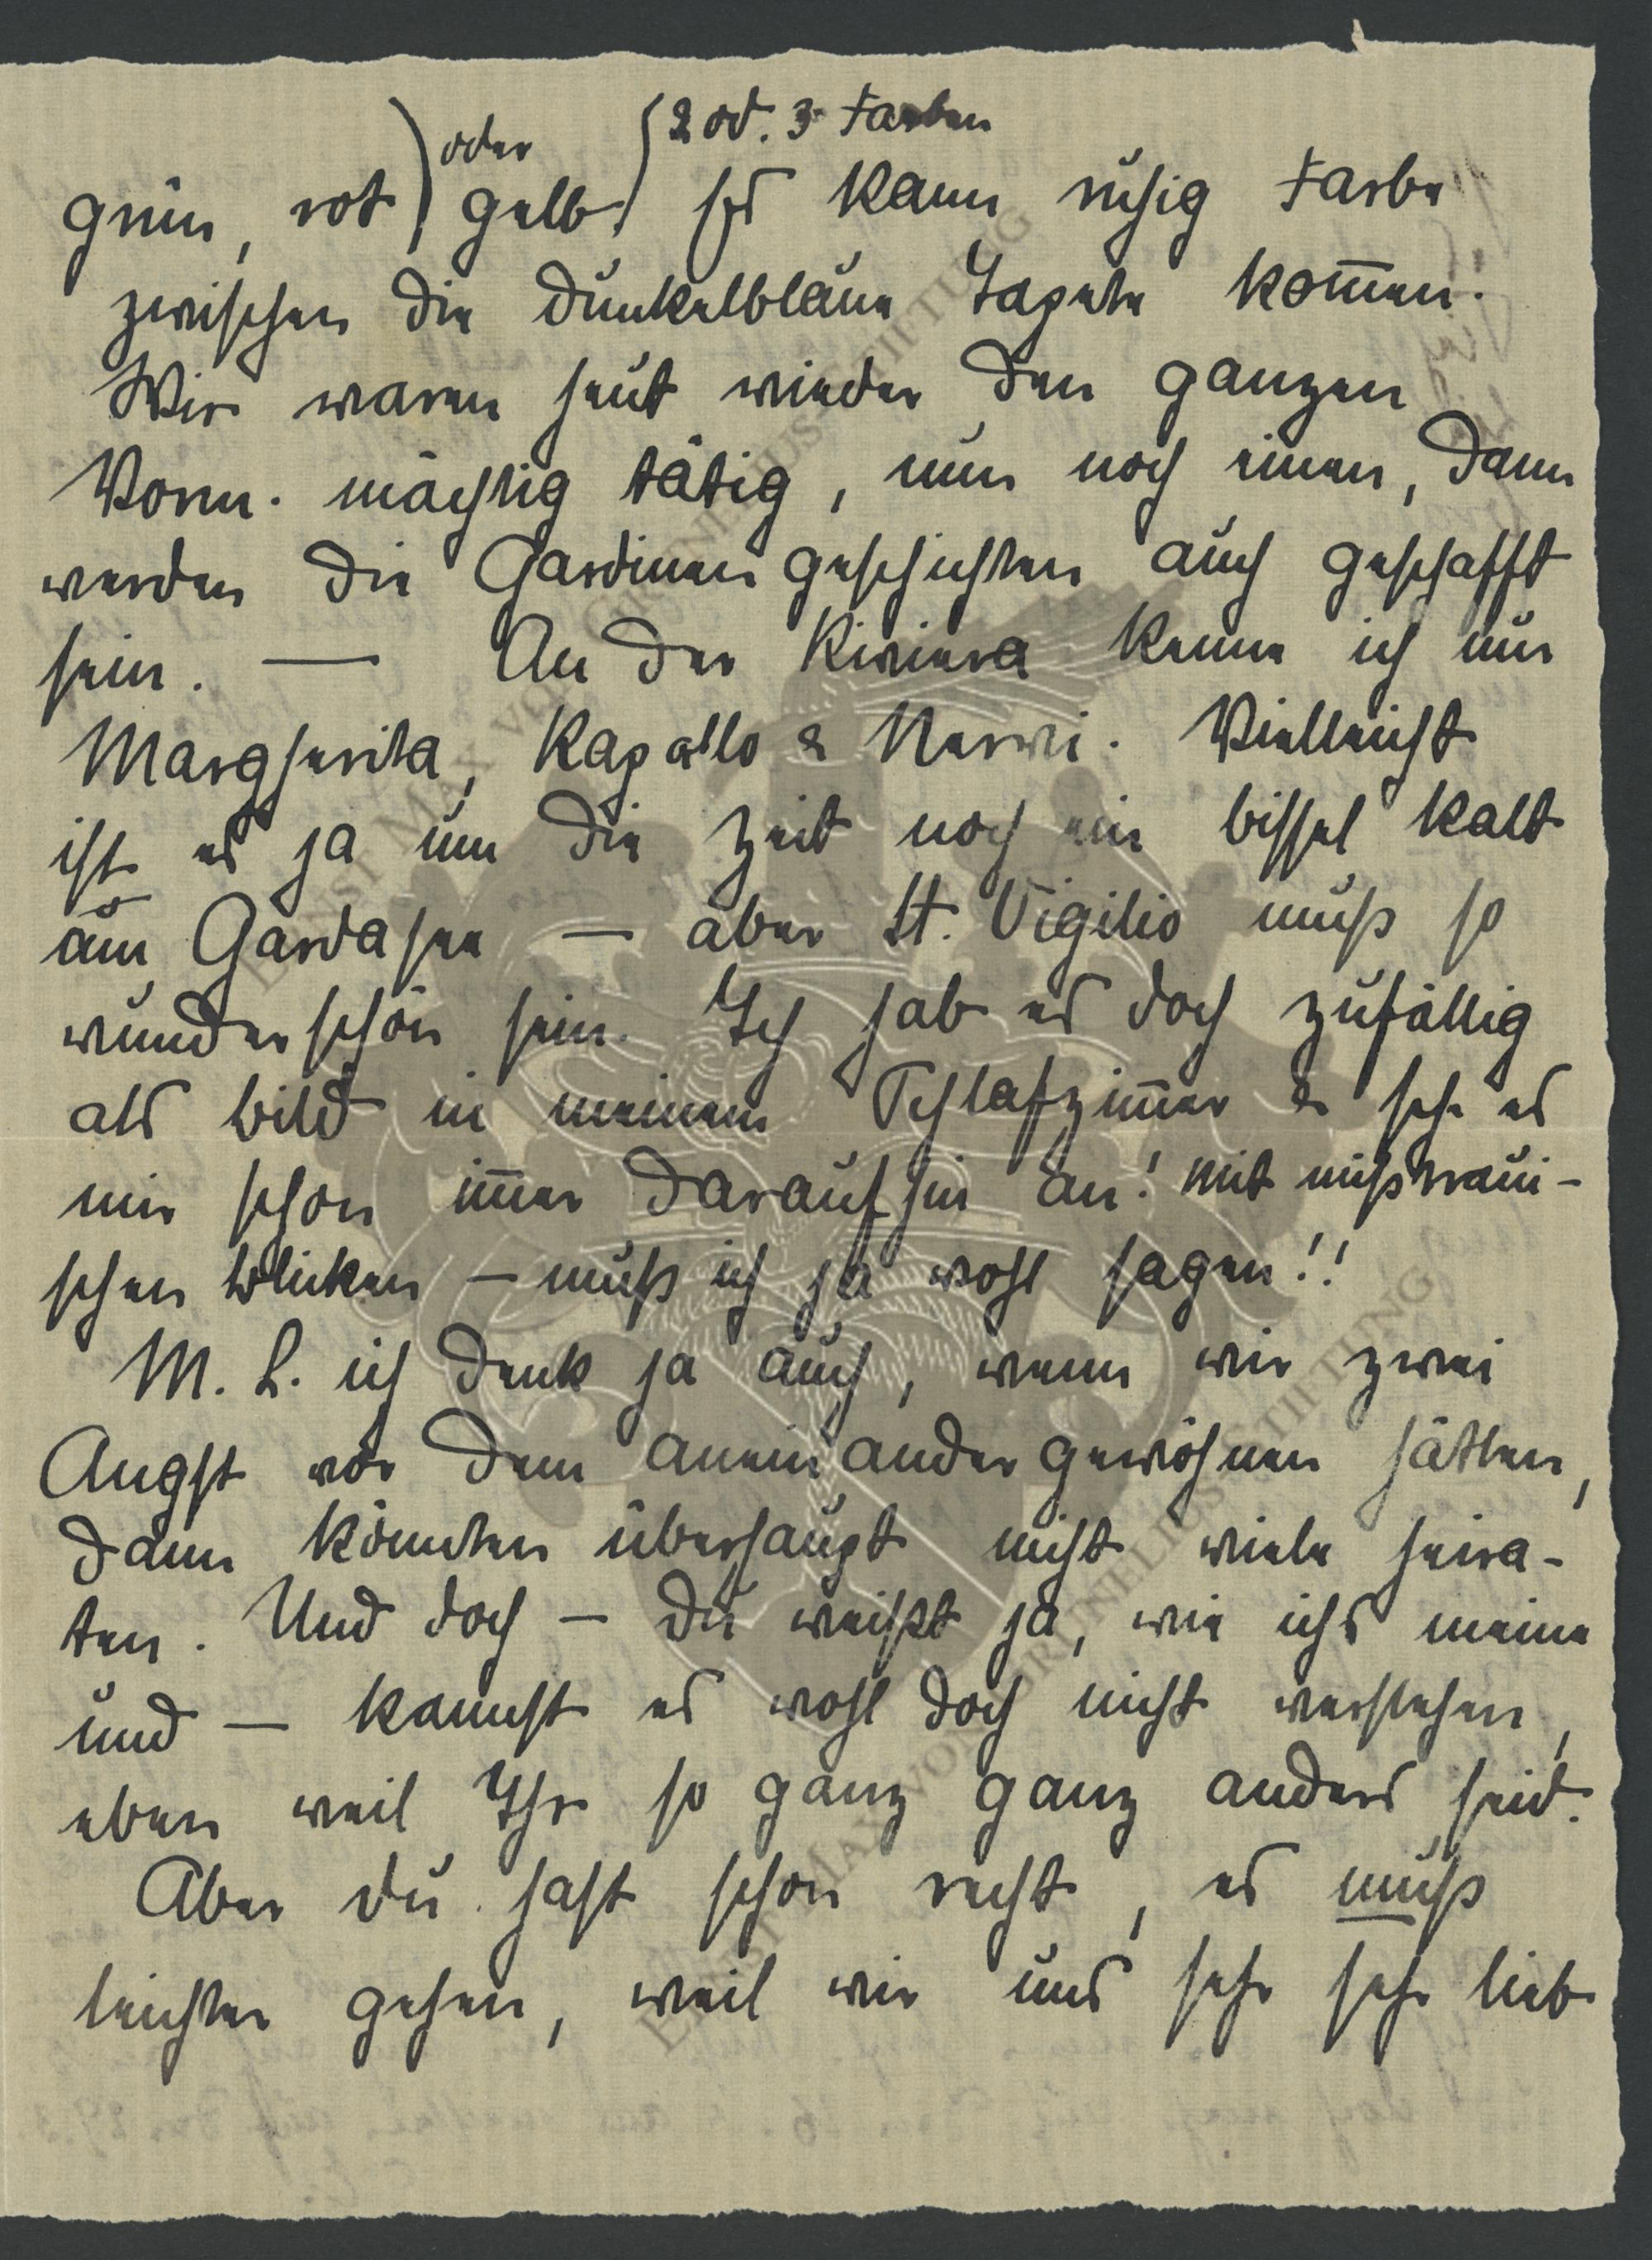 oder 2 od. 3 Farben
grün, rot) gelb) Es kann ruhig Farbe
zwischen die dunkelblaue Tapete kom̅en.
Wir waren heut wieder den ganzen
Vorm. mächtig tätig, nun noch einen, dann
werden die Gardinengeschichten auch geschafft
sein. — An der Riviera kenne ich nur
Margherita, Rapallo & Nervi. Vielleicht
ist es ja um die Zeit noch ein bissel kalt
am Gardasee — aber St. Vigilio muß so
wunderschön sein. Ich hab es doch zufällig
als Bild in meinem Schlafzim̅er & seh es
mir schon im̅er daraufhin an! Mit mißtraui-
schen Blicken — muß ich ja wohl sagen!!
M. L. ich denk ja auch, wenn wir zwei
Angst vor dem aneinandergewöhnen hätten,
dann könnten überhaupt nicht viele heira-
ten. Und doch — du weißt ja, wie ichs meine
und — kannst es wohl doch nicht verstehen,
eben weil Ihr so ganz ganz anders seid.
Aber du hast schon recht, es muß
leichter gehen, weil wir uns sehr sehr lieb
ERNST MAX VON GRUNELIUS-STIFTUNG
ERNST MAX VON GRUNELIUS-STIFTUNG